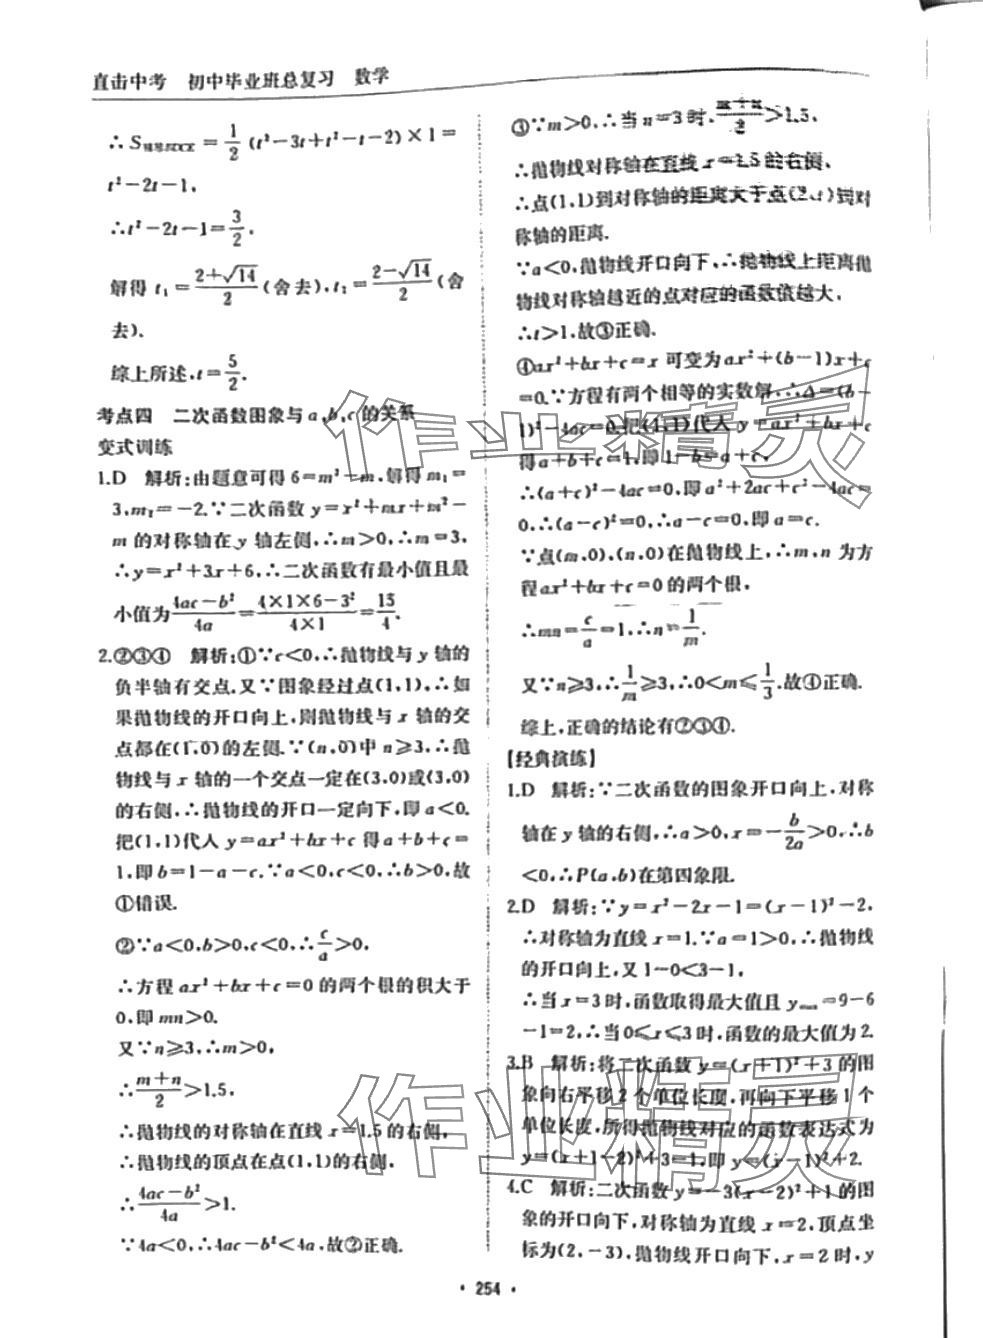 直击中考　初中毕业班总复习　数学
∴S = 1/2 (t²-3t+t²-t-2)×1=
t²-2t-1,
∴t²-2t-1=3/2,
解得 t₁=(2+√14)/2(舍去),t₂=(2-√14)/2(舍
去).
综上所述,t=5/2.
考点四　二次函数图象与a,b,c的关系
变式训练
1.D　解析:由题意可得 6=m²+m,解得 m₁=
3,m₂=-2.∵二次函数 y=x²+mx+m²-
m 的对称轴在 y 轴左侧,∴m>0,∴m=3,
∴y=x²+3x+6,∴二次函数有最小值且最
小值为(4ac-b²)/4a=(4×1×6-3²)/(4×1)=15/4.
2.②③④　解析:①∵c<0,∴抛物线与 y 轴的
负半轴有交点.又∵图象经过点(1,1),∴如
果抛物线的开口向上,则抛物线与 x 轴的交
点都在(1,0)的左侧.∵(n,0)中 n≥3,∴抛
物线与 x 轴的一个交点一定在(3,0)或(3,0)
的右侧,∴抛物线的开口一定向下,即 a<0.
把(1,1)代入 y=ax²+bx+c 得 a+b+c=
1,即 b=1-a-c.∵a<0,c<0,∴b>0,故
①错误.
②∵a<0,b>0,c<0,∴c/a>0,
∴方程 ax²+bx+c=0 的两个根的积大于
0,即 mn>0.
又∵n≥3,∴m>0,
∴(m+n)/2>1.5,
∴抛物线的对称轴在直线 x=1.5 的右侧,
∴抛物线的顶点在点(1,1)的右侧,
∴(4ac-b²)/4a>1.
∵4a<0,∴4ac-b²<4a,故②正确.
③∵m>0,∴当 n=3 时,(m+n)/2>1.5,
∴抛物线对称轴在直线 x=1.5 的右侧,
∴点(1,1)到对称轴的距离大于点(2,t)到对
称轴的距离.
∵a<0,抛物线开口向下,∴抛物线上距离抛
物线对称轴越近的点对应的函数值越大,
∴t>1,故③正确.
④ax²+bx+c=x 可变为 ax²+(b-1)x+c
=0.∵方程有两个相等的实数解,∴Δ=(b-
1)²-4ac=0.把(1,1)代入 y=ax²+bx+c
得 a+b+c=1,即 1-b=a+c,
∴(a+c)²-4ac=0,即 a²+2ac+c²-4ac=
0,∴(a-c)²=0,∴a-c=0,即 a=c.
∵点(m,0),(n,0)在抛物线上,∴m,n 为方
程 ax²+bx+c=0 的两个根,
∴mn=c/a=1,∴n=1/m.
又∵n≥3,∴1/m≥3,∴0<m≤1/3.故④正确.
综上,正确的结论有②③④.
【经典演练】
1.D　解析:∵二次函数的图象开口向上,对称
轴在 y 轴的右侧,∴a>0,x=-b/2a>0,∴b
<0,∴P(a,b)在第四象限.
2.D　解析:∵y=x²-2x-1=(x-1)²-2,
∴对称轴为直线 x=1.∵a=1>0,∴抛物线
的开口向上,又 1-0<3-1,
∴当 x=3 时,函数取得最大值且 y=9-6
-1=2,∴当 0≤x≤3 时,函数的最大值为 2.
3.B　解析:将二次函数 y=(x+1)²+3 的图
象向右平移 2 个单位长度,再向下平移 1 个
单位长度,所得抛物线对应的函数表达式为
y=(x+1-2)²+3-1,即 y=(x-1)²+2.
4.C　解析:二次函数 y=-3(x-2)²+1 的图
象的开口向下,对称轴为直线 x=2,顶点坐
标为(2,-3),抛物线开口向下,x=2 时,y
· 254 ·
作业精灵
作业精灵